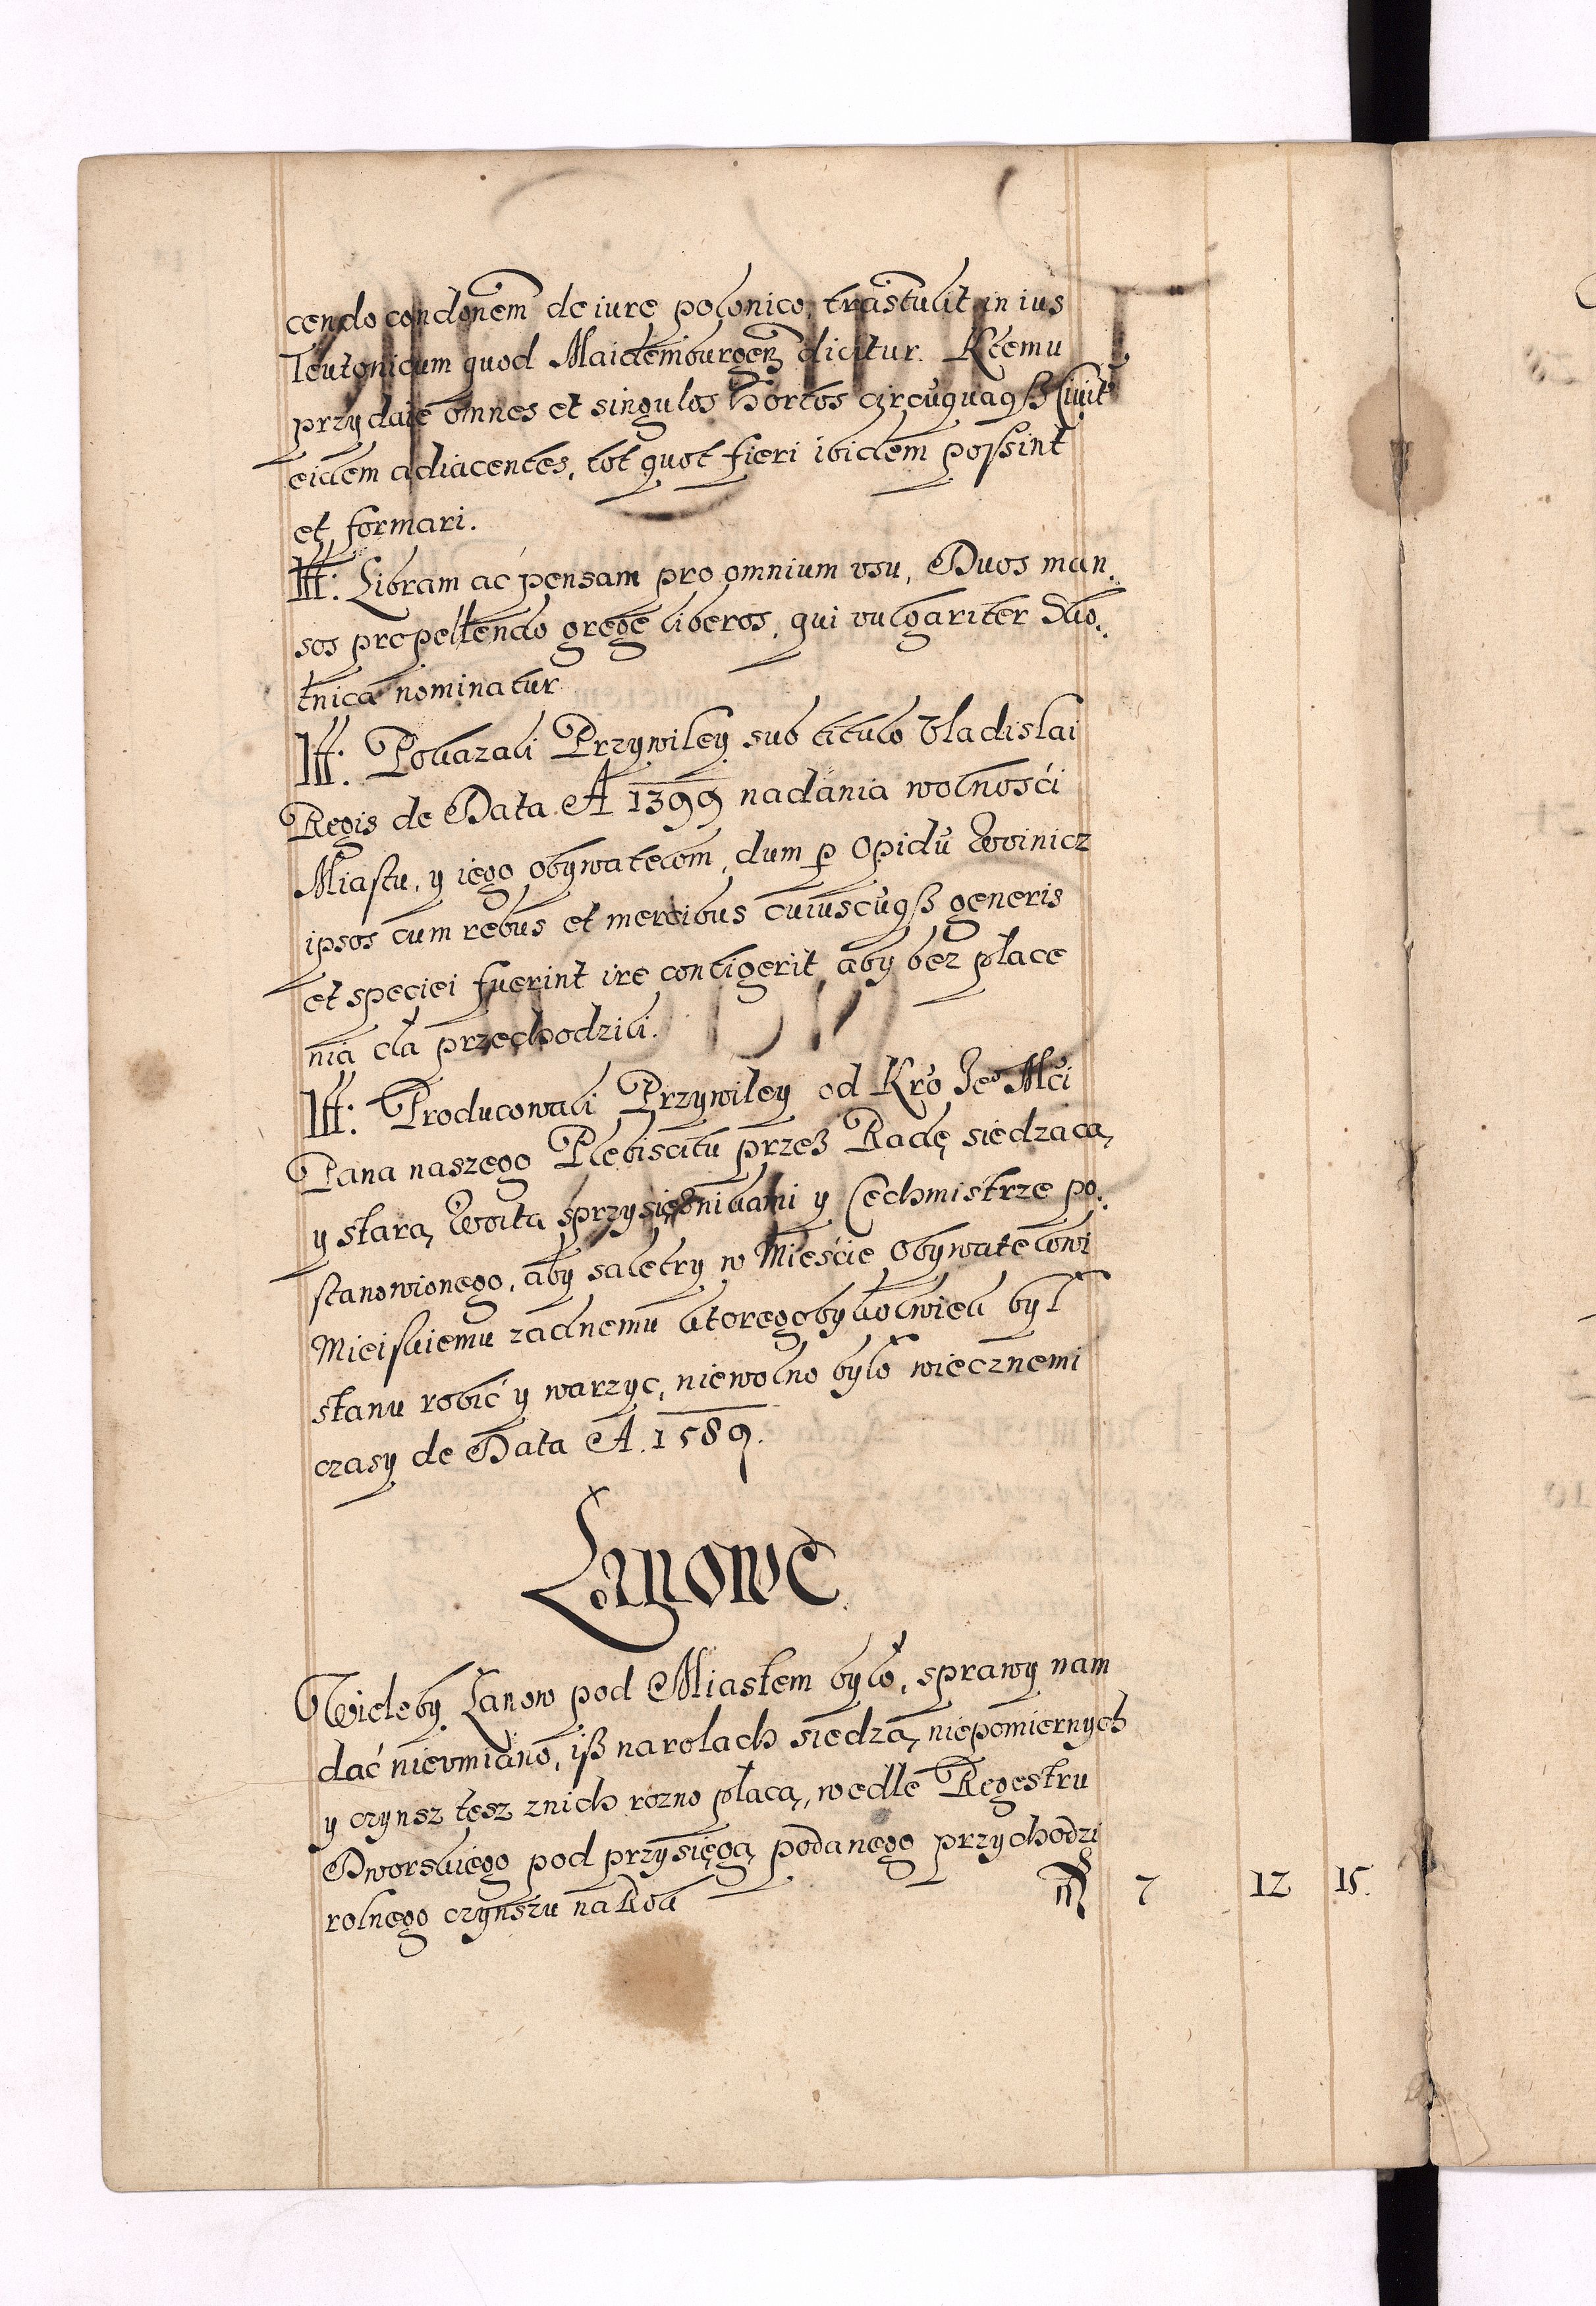 cendo condonem de iure polonico, trastulit in ius
Teutonicum quod Maidemburgen dicitur. Ktemu
przydaie omnes et singulos Hortos circuquaqß Civit
eidem adiacentes, tot quot fieri ibidem poßint
et formari.
Itt: Libram ac pensam pro omnium vsu, Duos man.
sos propellendo grege liberos, qui vulgariter Sko.
tnica nominatur
Itt: Pokazali Przywiley sub titulo Vladislai
Regis de Data A 1399 nadania wolnosći
Miastu, y iego obywatelom, dum p opidu Woinicz
ipsos cum rebus et mercibus cuiuscuqß generis
et speciei fuerint ire contigerit, aby bez place
nia cla przechodzili.
Itt: Producowali Przywiley od Kro Jeo Mci
Pana naszego Plebiscitu przeß Radę siedzącą
y starą, Woita sprzysiężnikami y Cechmistrze po.
stanowionego, aby saletry w Mieście Obywatelowi
Mieiskiemu zadnemu ktoregobykolwiek był
stanu robić y warzyc, niewolno było wiecznemi
czasy de Data A. 1589.
Lanowe
Wieleby Lanow pod Miastem było, sprawy nam
dać nievmiano, iß narolach siedzą, niepomiernych
y czynsz tesz znich rozno płacą, wedle Regestru
Dworskiego pod przysięgą podanego przychodzi
rolnego czynszu na Rok 7 12 15.